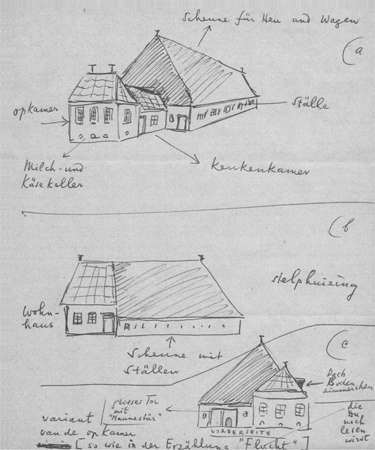 Scheune für Heu und Wagen
(a
opkamer
Ställe
Milch- und
Käsekeller
Keukenkamer
(b
stelphuizung
Wohn-
haus
Scheune mit
Ställen
(c
Dach
Boden
zimmerchen
grosses Tor
mit
"Mannestür"
die Du
noch
lesen
wirst
VORDERSEITE
variant
van de opkamer
[so wie in der Erzählung "Flucht"]